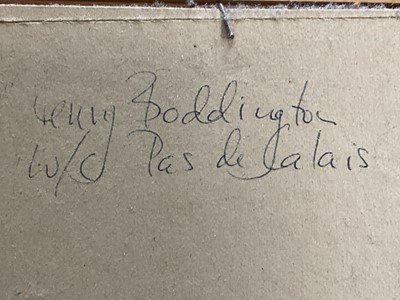 Henry Boddington
w/c Pas de Calais